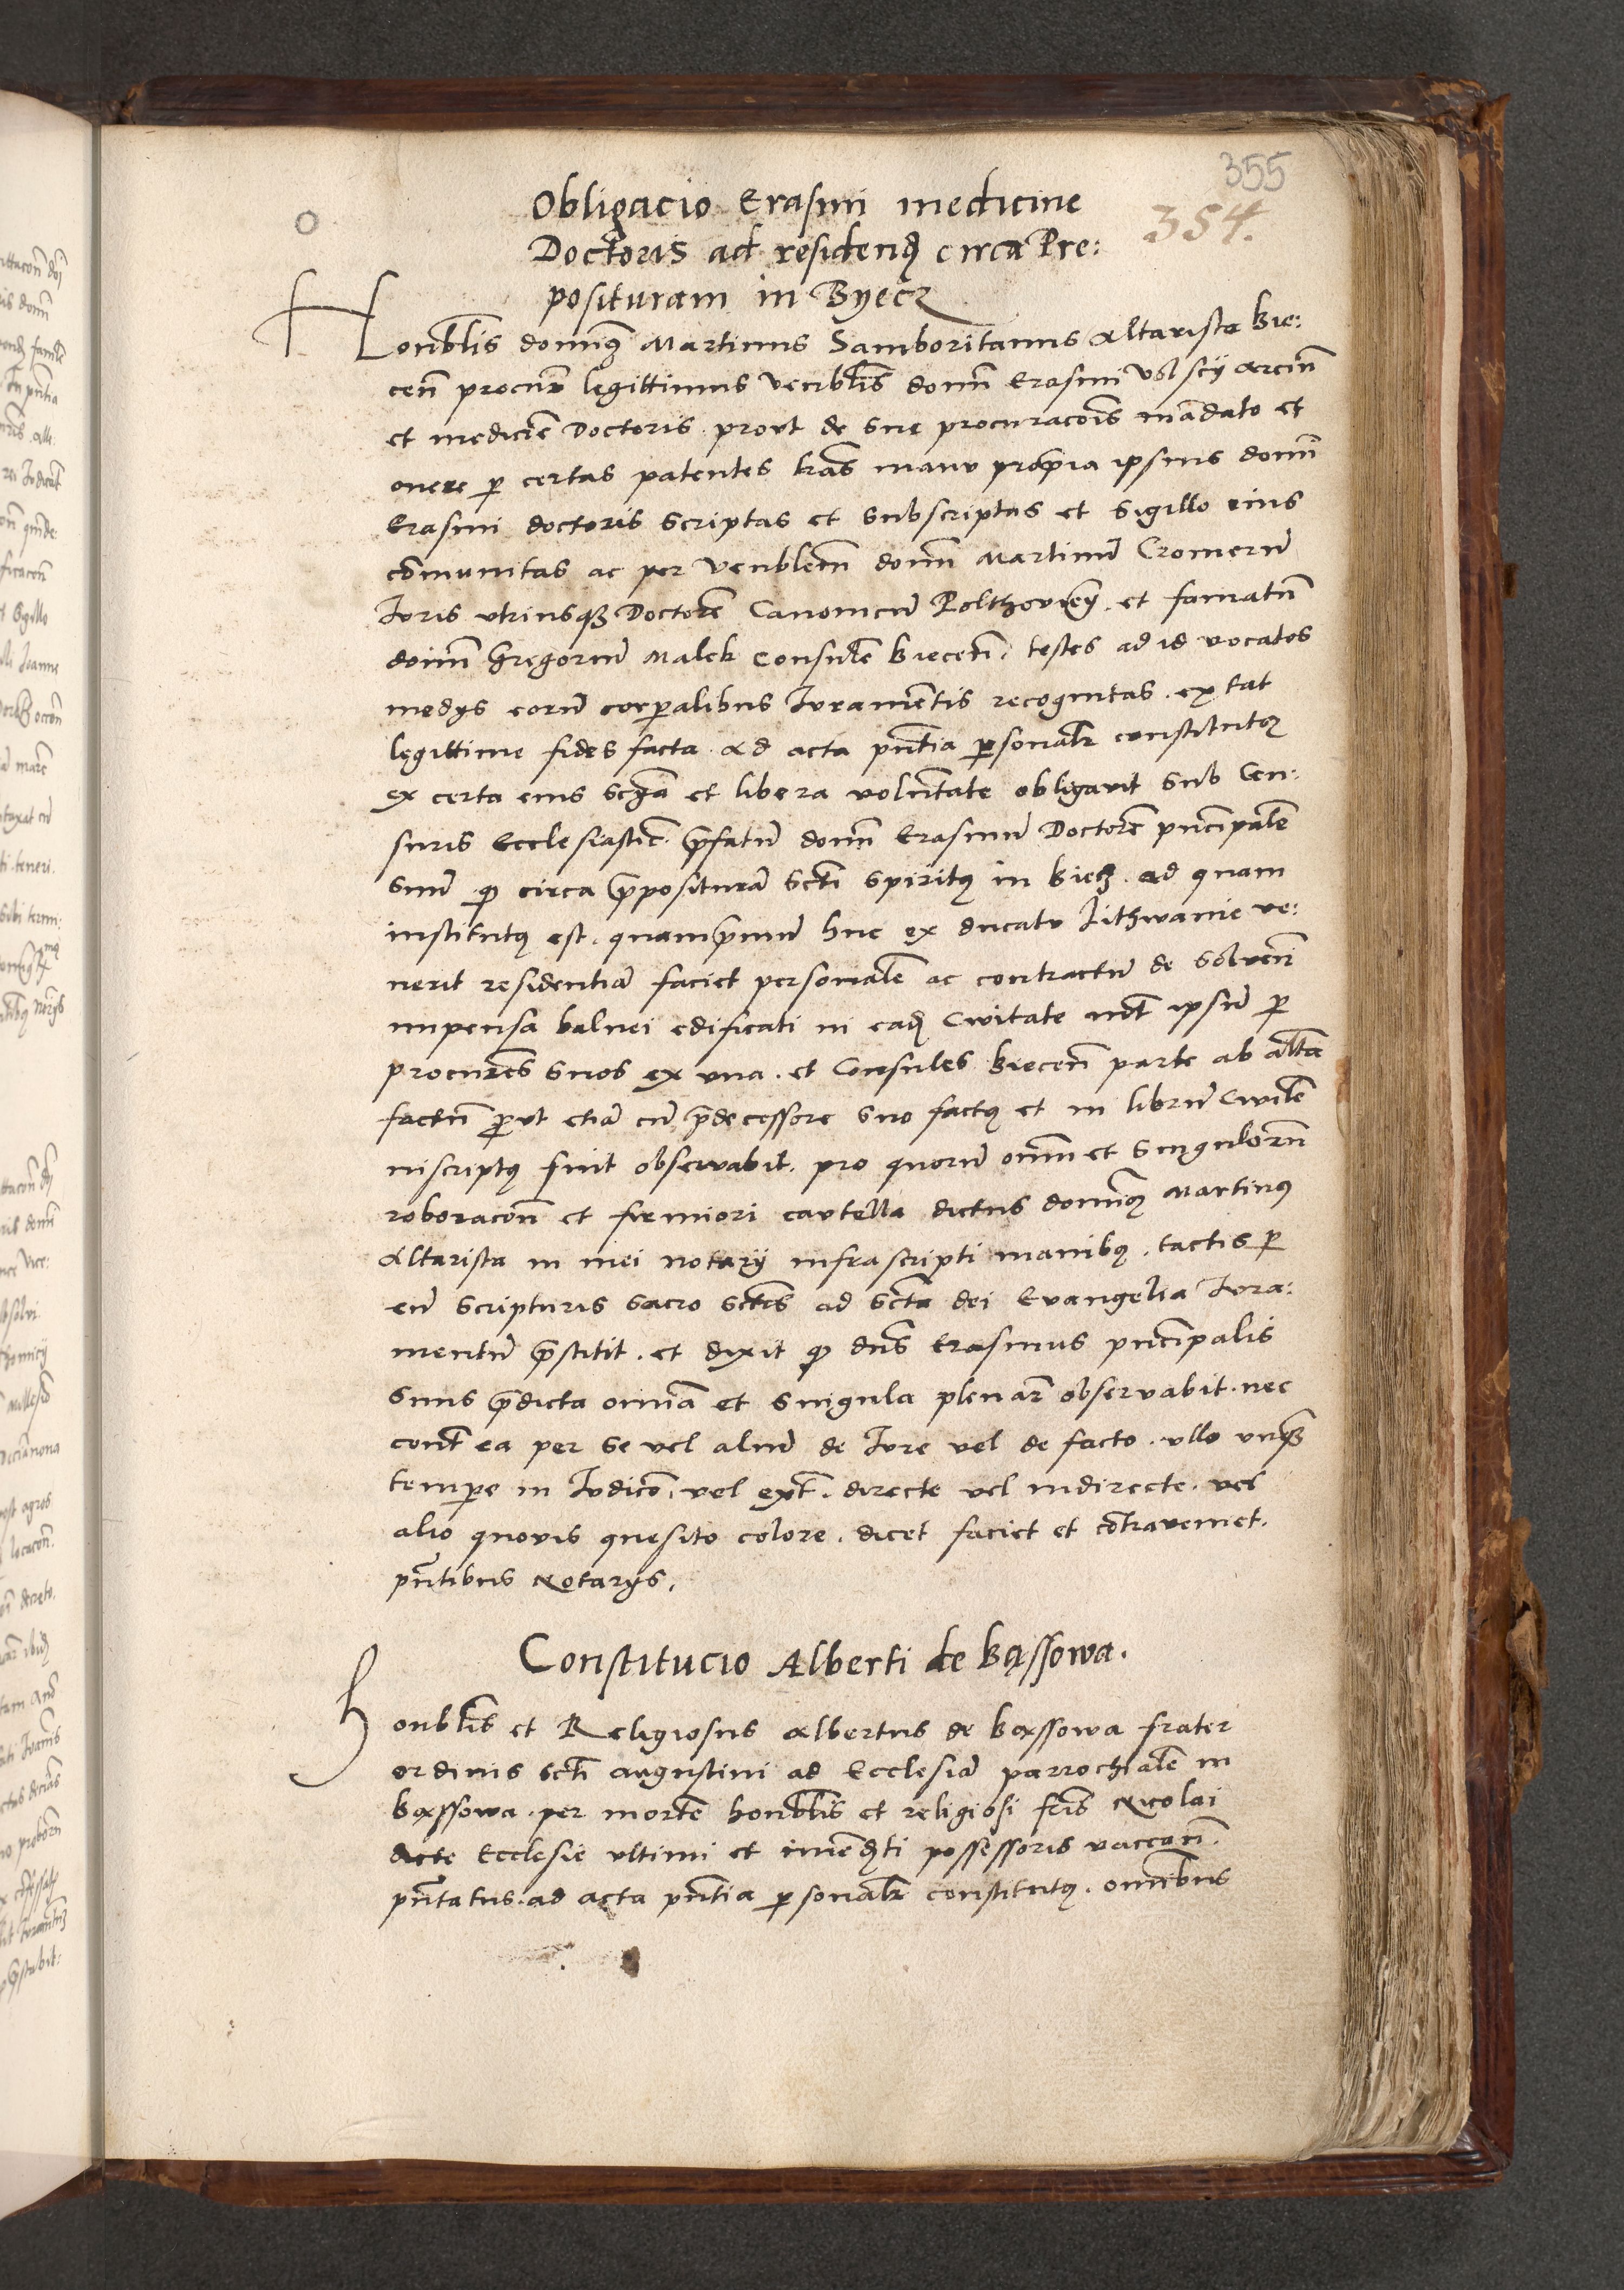 355
354.
Obligacio Erasmi medicine
Doctoris ad residend circa Pre:
posituram in Byecz
Honblis dominꝰ Martinus Samboritanus Altarista Bie:
ceñ procur legittimus Venblis domi Erasmi arciu
et medicie Doctoris. prout de sue procuracois mandato et
onere ꝑ certas patentes lras manu propria ipsius domi
Erasmi doctoris scriptas et subscriptas et sigillo eius
comunitas ac per Venblem dom Martinu Cromeru
Iuris utriusqꝫ Doctore Canonicu et famatu
dom Gregoriu Malek Consule Biecen. testes ad id vocatos
medijs eoru corꝑalibus Iuramentis recognitas. extat
legittime fides facta. Ad acta pntia ꝑsonalr constitutꝰ
ex certa eius scia et libera voluntate obligavit sub Cen:
suris Ecclesiastic. prefatu dom Erasmu Doctore principale
suu ꝙ circa prepositura scti Spiritꝰ in Biecz. ad quam
institutꝰ est. quamprimu huc ex ducatu Lithwanie ve:
nerit residentia faciet personale ac contractu de solven
impensa balnei edificati in ead Civitate int ipsu ꝑ
procures suos ex una. et Consules Biecen parte ab alta
factu prout etia cu predecessore suo factꝰ et in libru Civile
inscriptꝰ fuit observabit. pro quoru omiu et singuloru
roboracon et firmiori cautella dictus dominꝰ Martinꝰ
Altarista in mei notarij infrascripti manibꝰ. tactis ꝑ
eu scripturis sacro sctis ad scta dei Evangelia Iura:
mentu prestitit. et dixit ꝙ dns Erasmus principalis
suus predicta omia et singula plenar observabit. nec
cont ea per se vel aliu de Iure vel de facto. ullo unqꝫ
tempe in Iudico. vel ext. directe vel indirecte. vel
alio quovis quesito colore. dicet faciet et contraveniet.
pntibus Notarijs.
Constitucio Alberti de Bąssowa.
Honblis et Religiosus Albertus de Bąssowa frater
ordinis scti augustini ad Ecclesia parrochiale in
Bąssowa. per morte honblis et religiosi fris Nicolai
dicte Ecclesie ultimi et imediati possessoris vacan.
pntatus. ad acta pntia ꝑsonalr constitutꝰ. omibus